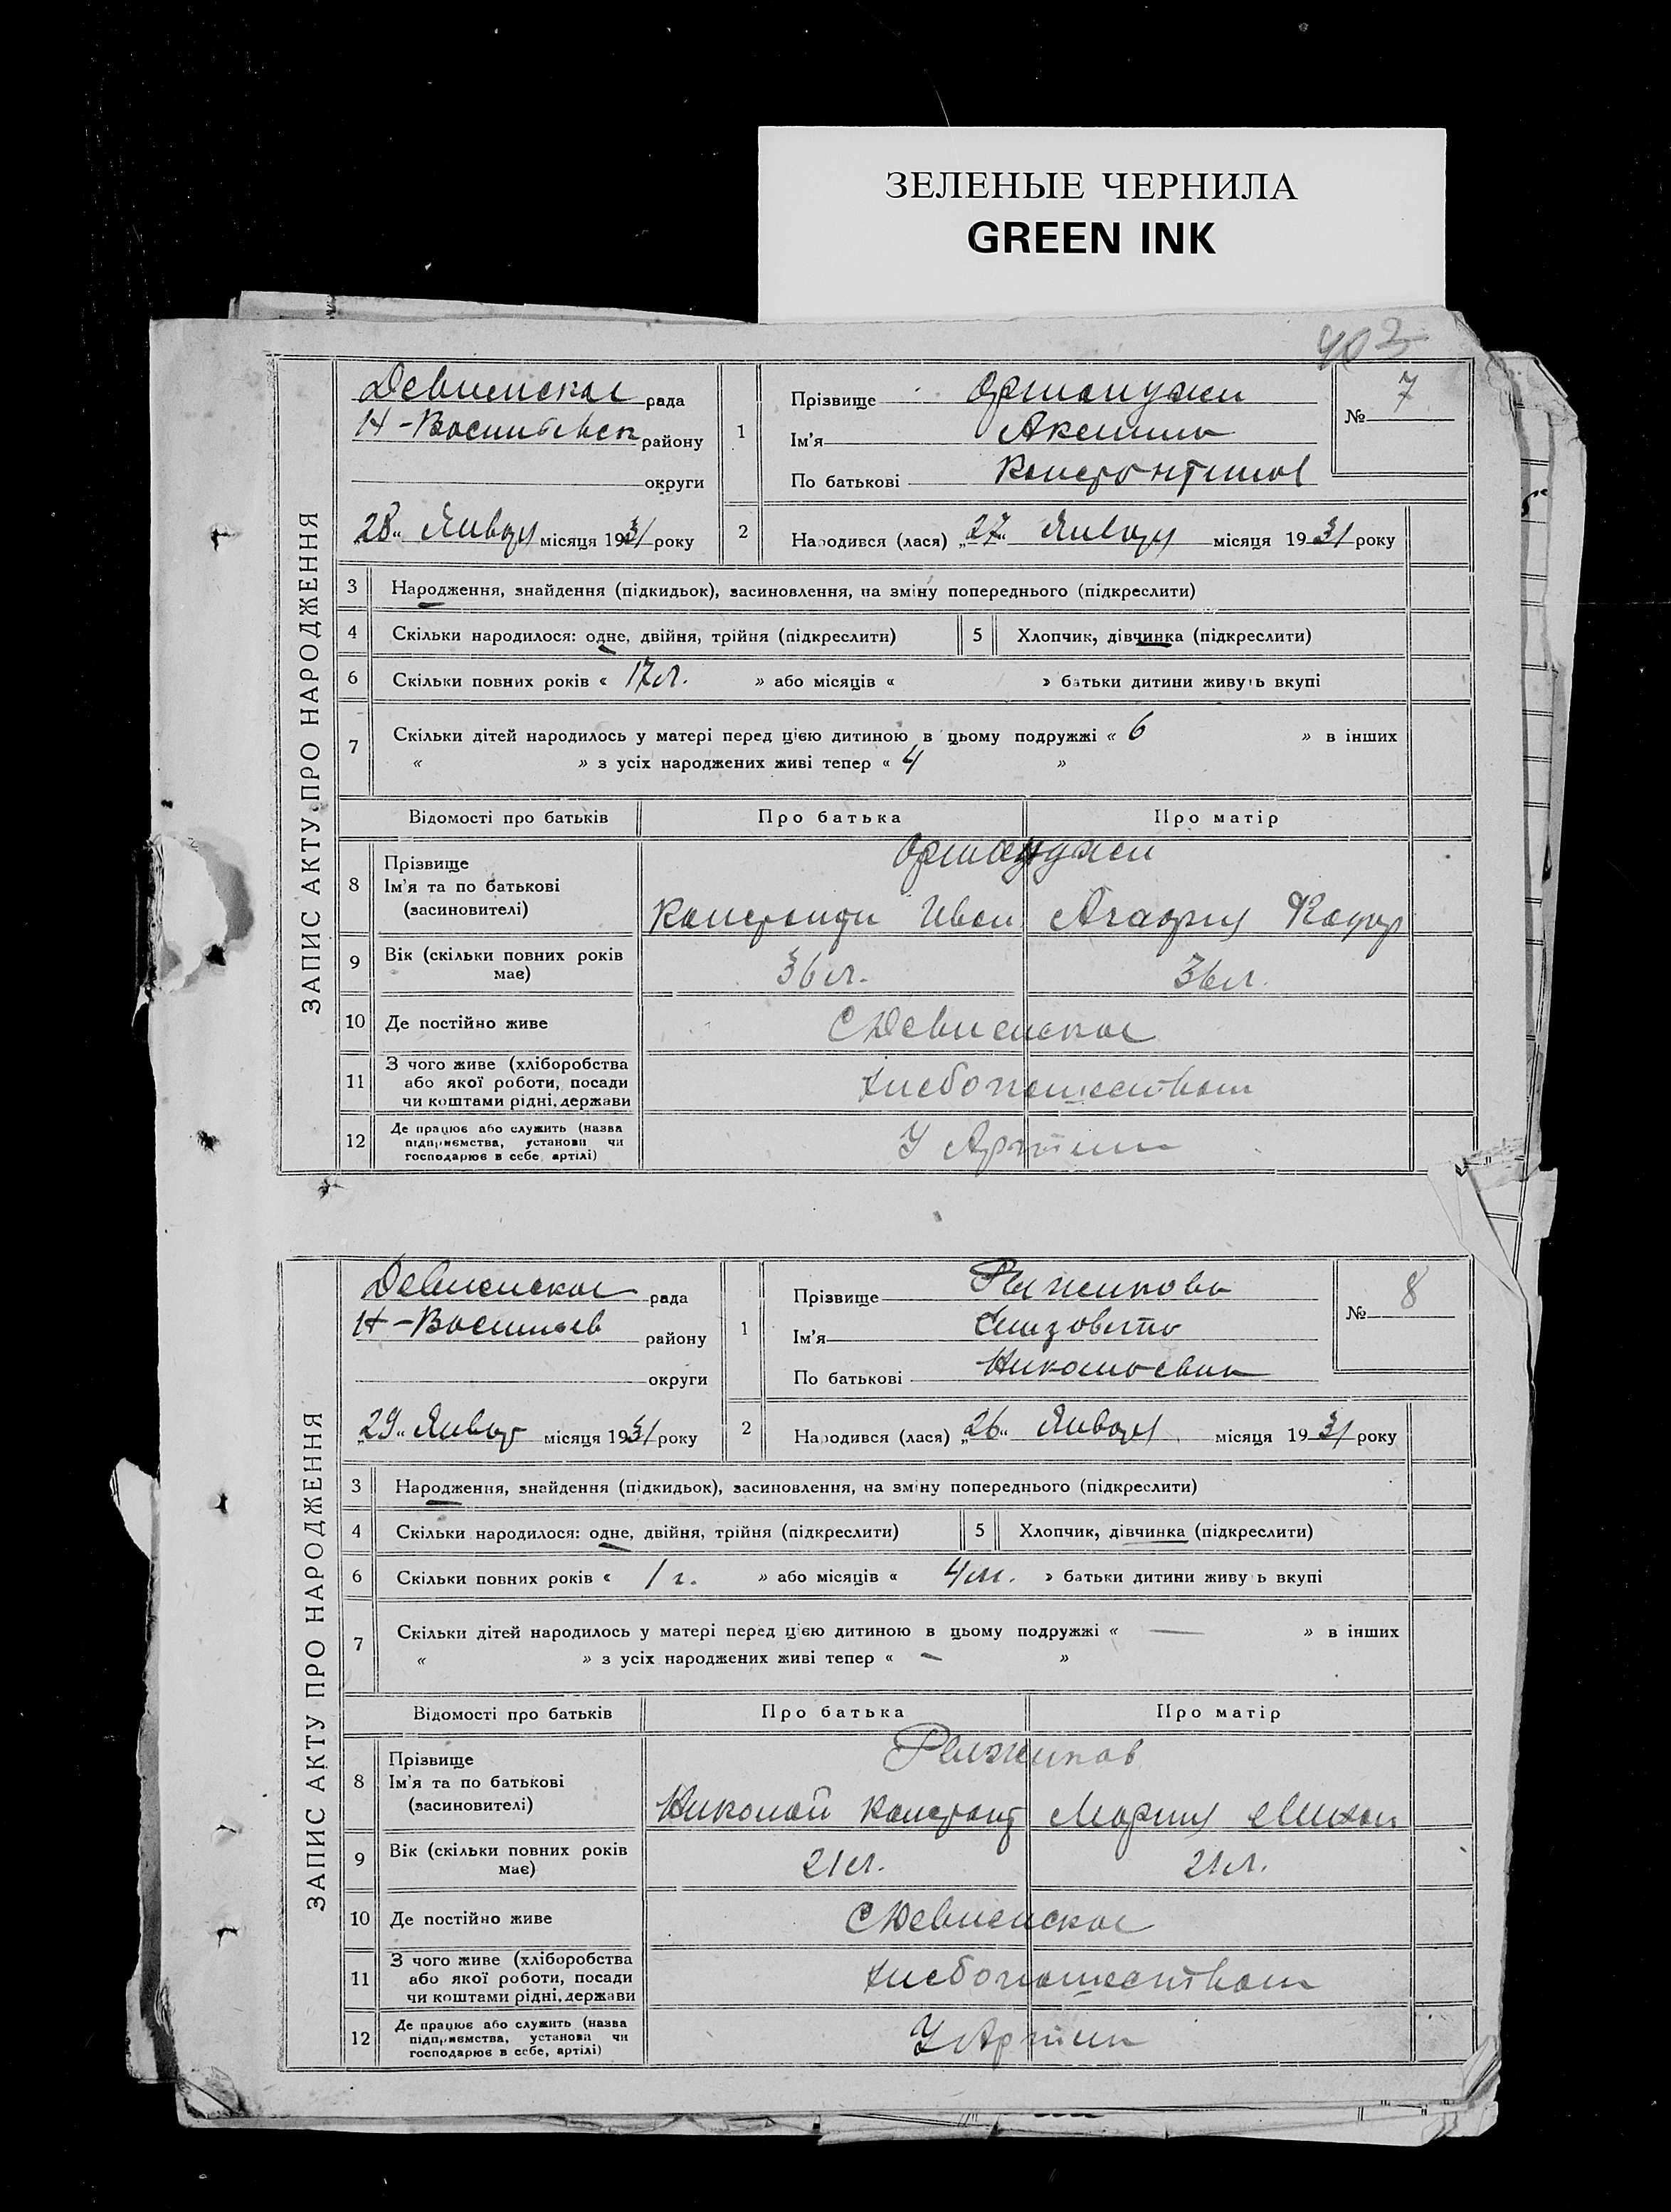 ЗЕЛЕНЫЕ ЧЕРНИЛА
GREEN INK
403
ЗАПИС АКТУ ПРО НАРОДЖЕННЯ
Девненское рада
Н-Васильевск району
округи
28 Января місяця 1931 року
1
Прізвище
Ім'я Аксинья
По батькові Константинов
№ 7
2
Народився (лася) „27" Января місяця 1931 року
3 Народження, знайдення (підкидьок), засиновлення, на зміну попереднього (підкреслити)
4 Скільки народилося: одне, двійня, трійня (підкреслити) 5 Хлопчик, дівчинка (підкреслити)
6 Скільки повних років « 17 л. » або місяців « » батьки дитини живуть вкупі
7 Скільки дітей народилось у матері перед цією дитиною в цьому подружжі « 6 » в інших
« » з усіх народжених живі тепер « 4 »
Відомості про батьків Про батька Про матір
8 Прізвище
Ім'я та по батькові
(засиновителі)
Иван Агафия
9 Вік (скільки повних років має) 36 л. 36 л.
10 Де постійно живе С Девненское
11 З чого живе (хліборобства або якої роботи, посади чи коштами рідні, держави Хлебопашеством
12 Де працює або служить (назва підприємства, установи чи господарює в себе, артілі) У Артели
ЗАПИС АКТУ ПРО НАРОДЖЕННЯ
Девненское рада
Н-Васильев району
округи
„29" Январ місяця 1931 року
1
Прізвище Рыжикова
Ім'я Елизовета
По батькові Николаевна
№ 8
2
Народився (лася) „26" Января місяця 1931 року
3 Народження, знайдення (підкидьок), засиновлення, на зміну попереднього (підкреслити)
4 Скільки народилося: одне, двійня, трійня (підкреслити) 5 Хлопчик, дівчинка (підкреслити)
6 Скільки повних років « 1 г. » або місяців « 4 м. » батьки дитини живуть вкупі
7 Скільки дітей народилось у матері перед цією дитиною в цьому подружжі « — » в інших
« » з усіх народжених живі тепер « — »
Відомості про батьків Про батька Про матір
8 Прізвище
Ім'я та по батькові
(засиновителі)
Рыжиков
Николай Констант Мария Михаи
9 Вік (скільки повних років має) 21 л. 21 л.
10 Де постійно живе С Девненское
11 З чого живе (хліборобства або якої роботи, посади чи коштами рідні, держави Хлебопашеством
12 Де працює або служить (назва підприємства, установи чи господарює в себе, артілі) У Артели